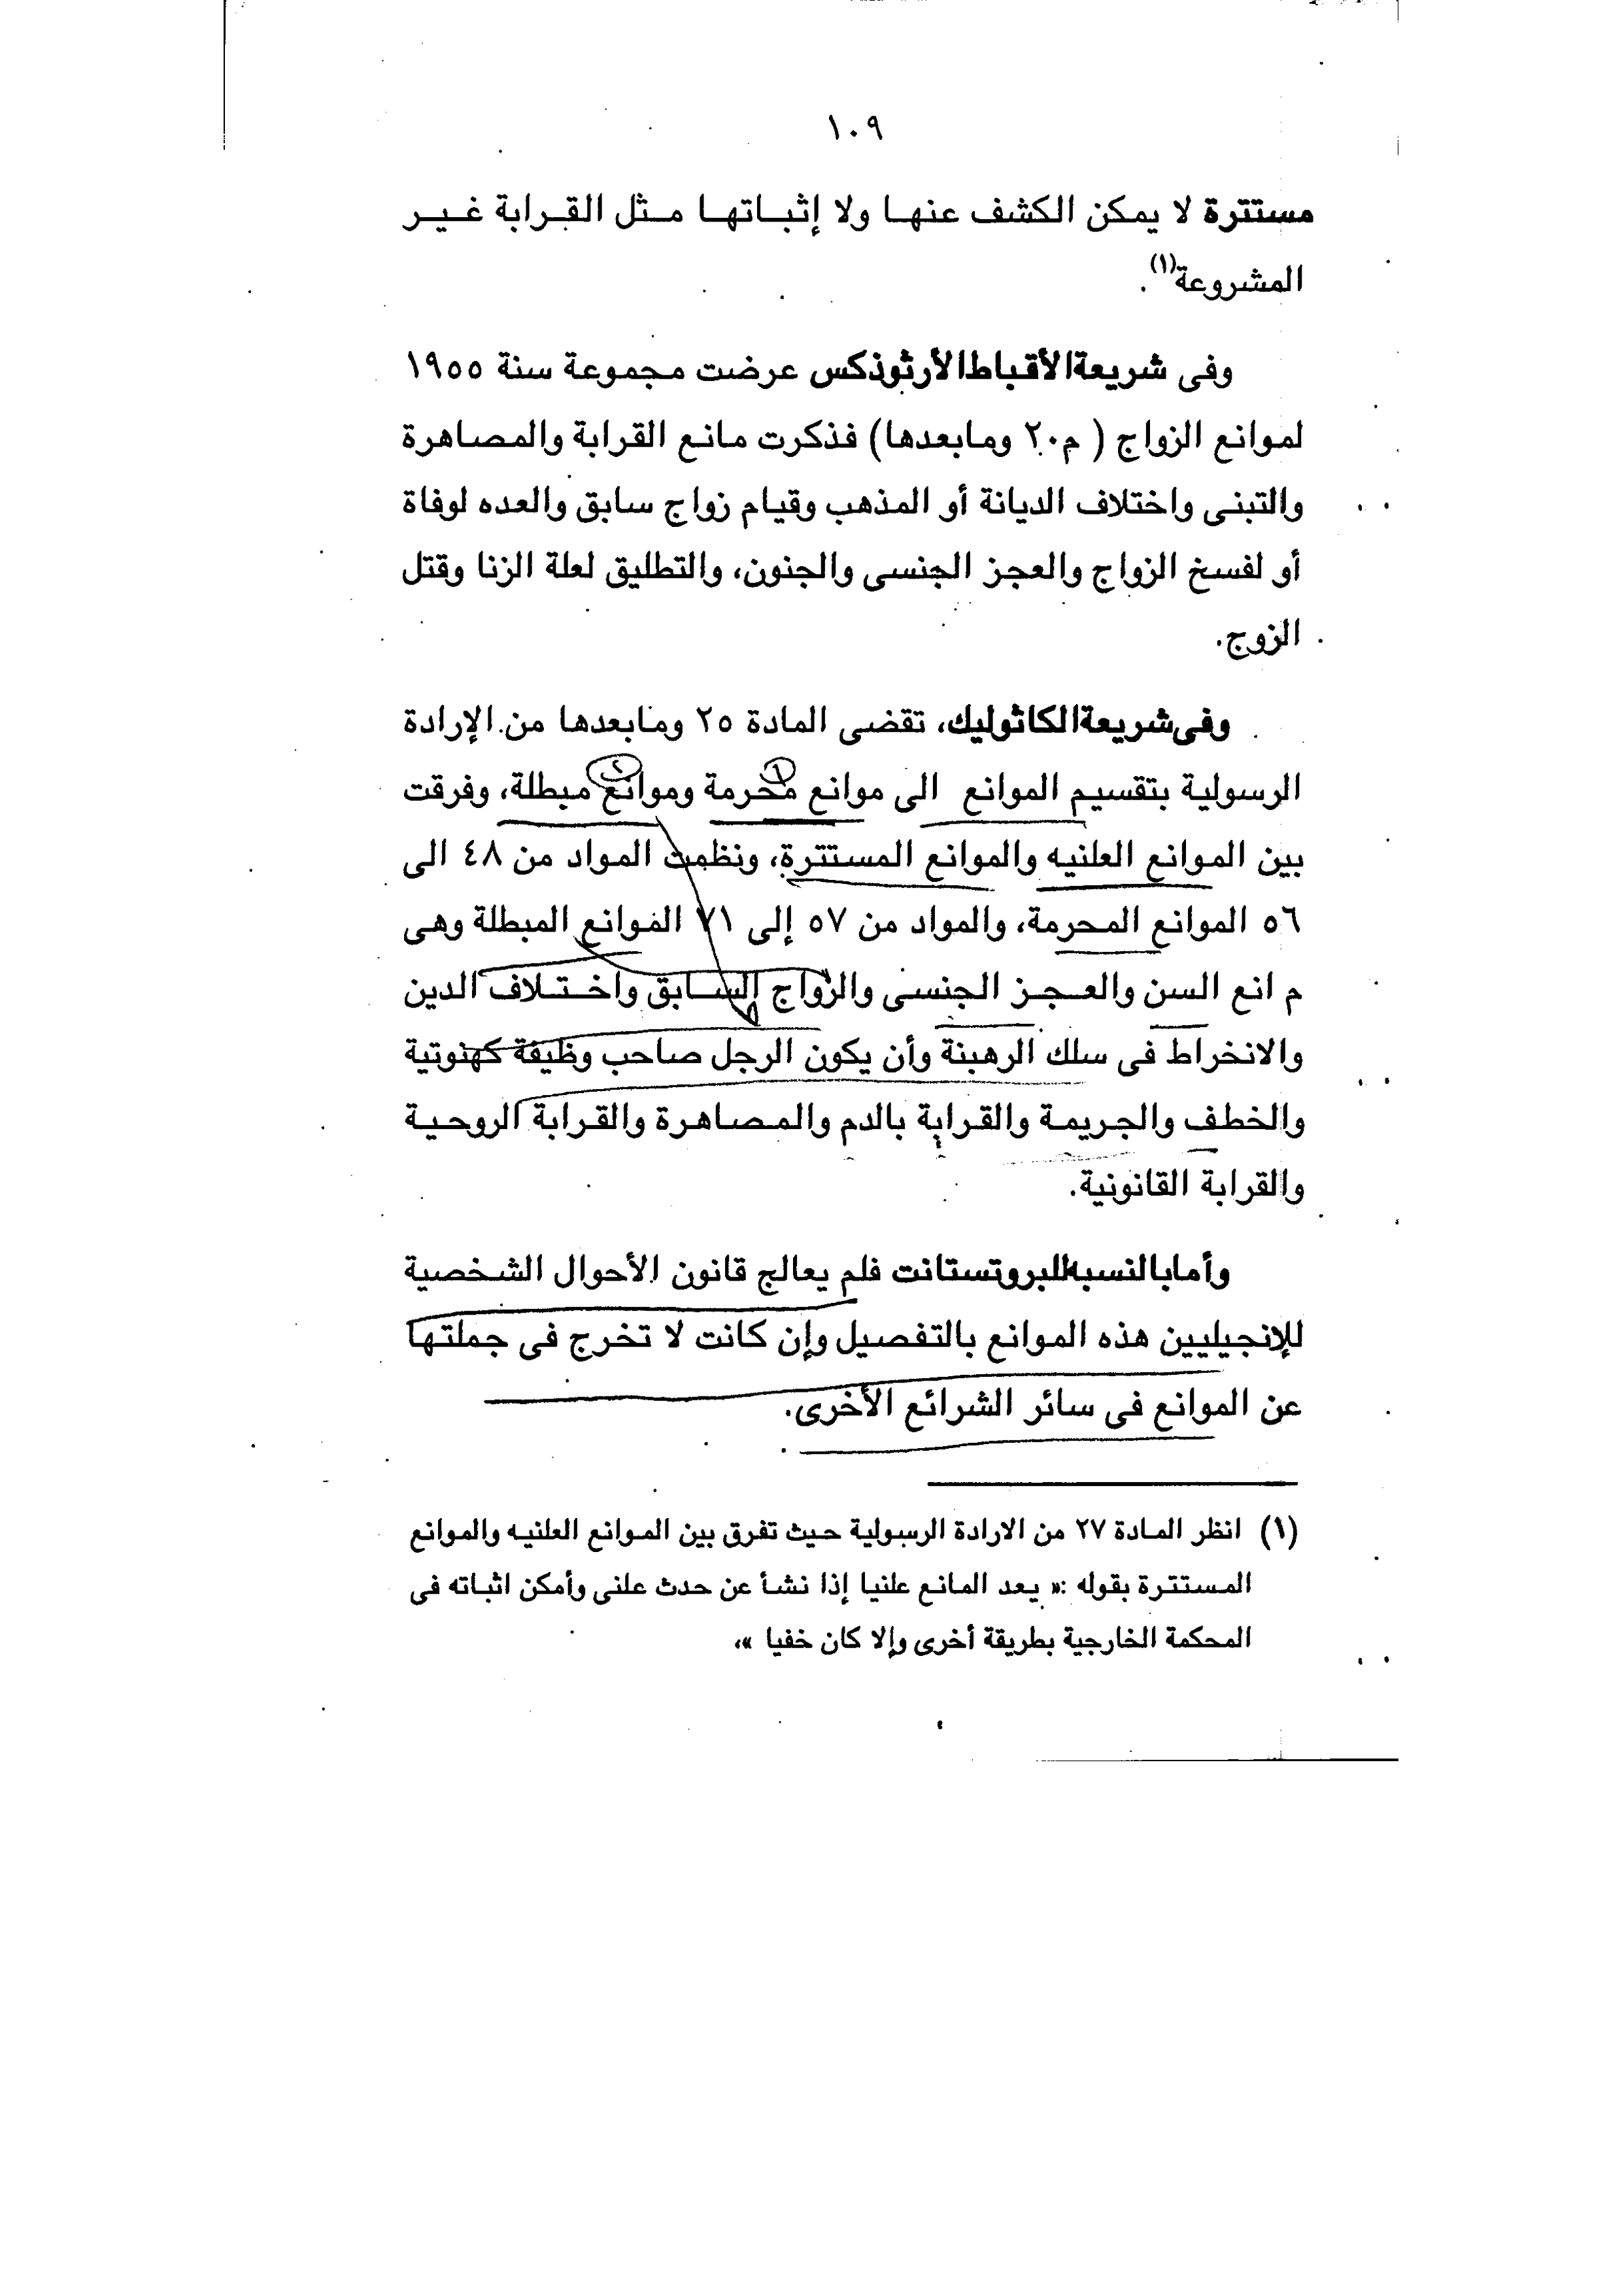 ١٠٩
مستترة لا يمكن الكشف عنها ولا إثباتها مثل القرابة غير
المشروعة(١).
وفى شريعة الأقباط الأرثوذكس عرضت مجموعة سنة ١٩٥٥
لموانع الزواج ( م٢٠ ومابعدها) فذكرت مانع القرابة والمصاهرة
والتبنى واختلاف الديانة أو المذهب وقيام زواج سابق والعده لوفاة
أو لفسخ الزواج والعجز الجنسى والجنون، والتطليق لعلة الزنا وقتل
الزوج.
وفى شريعة الكاثوليك، تقضى المادة ٢٥ ومابعدها من الإرادة
الرسولية بتقسيم الموانع الى موانع محرمة وموانع مبطلة، وفرقت
بين الموانع العلنيه والموانع المستترة، ونظمت المواد من ٤٨ الى
٥٦ الموانع المحرمة، والمواد من ٥٧ إلى ٧١ الموانع المبطلة وهى
م انع السن والعجز الجنسى والزواج السابق واختلاف الدين
والانخراط فى سلك الرهبنة وأن يكون الرجل صاحب وظيفة كهنوتية
والخطف والجريمة والقرابة بالدم والمصاهرة والقرابة الروحية
والقرابة القانونية.
وأما بالنسبه للبروتستانت فلم يعالج قانون الأحوال الشخصية
للإنجيليين هذه الموانع بالتفصيل وإن كانت لا تخرج فى جملتها
عن الموانع فى سائر الشرائع الأخرى.
(١) انظر المادة ٢٧ من الارادة الرسولية حيث تفرق بين الموانع العلنيه والموانع
المستترة بقوله :« يعد المانع علنيا إذا نشأ عن حدث علنى وأمكن اثباته فى
المحكمة الخارجية بطريقة أخرى وإلا كان خفيا »،